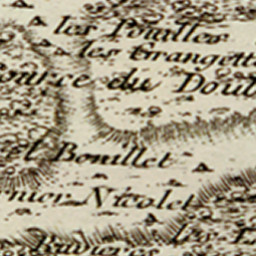 les Pouilles
les Grangett
ource du Doub
t Bouillet
nier Nicolet
Rivieres les